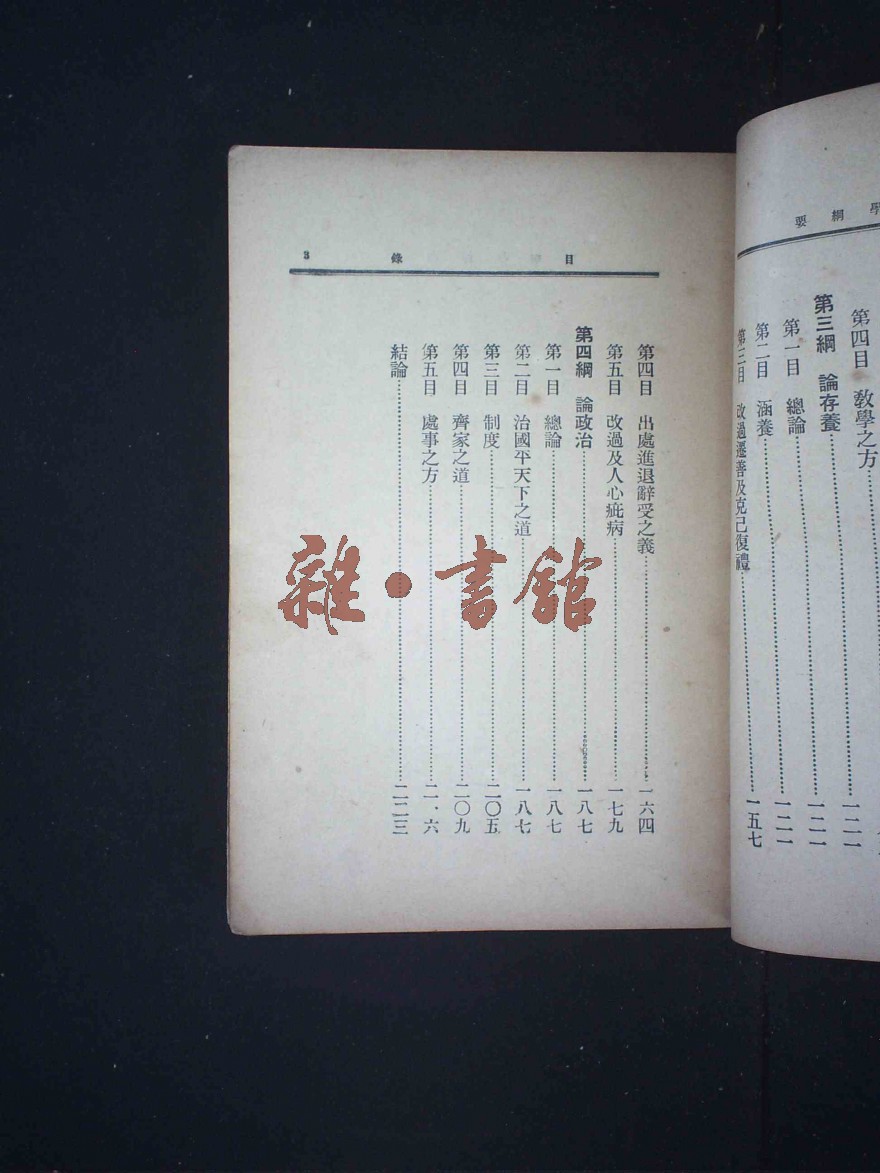 學綱要
第四目　教學之方……一二一
第三綱　論存養……一二一
第一目　總論……一二一
第二目　涵養
第三目　改過遷善及克己復禮……一五七
目錄 3
第四目　出處進退辭受之義……一六四
第五目　改過及人心疵病……一七九
第四綱　論政治……一八七
第一目　總論……一八七
第二目　治國平天下之道……一八七
第三目　制度……二〇五
第四目　齊家之道……二〇九
第五目　處事之方……二一六
結論……二二三
雜·書館